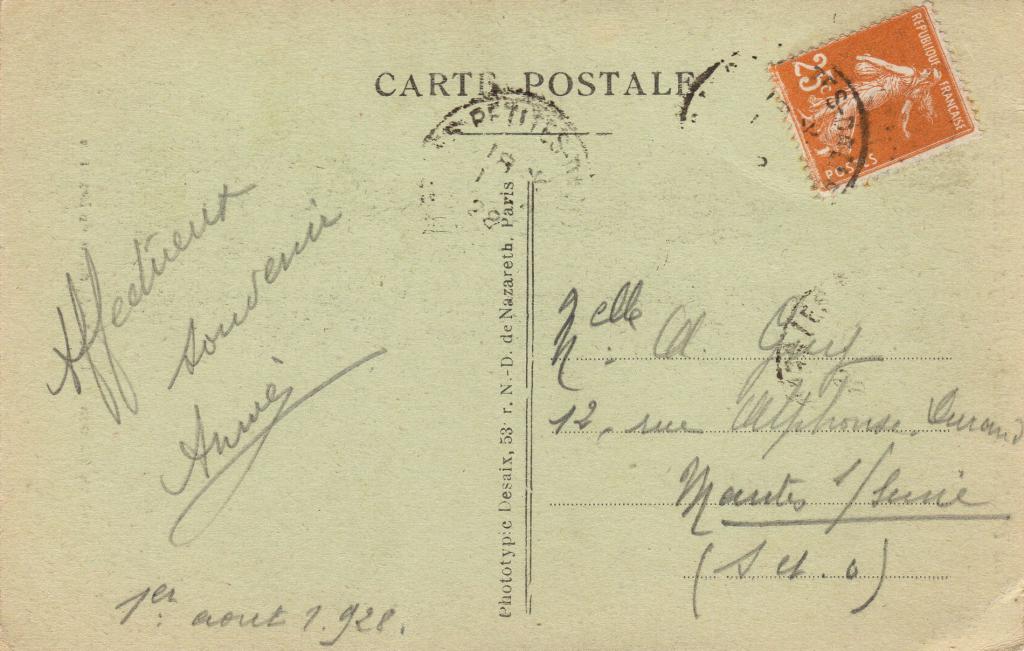 CARTE POSTALE
RÉPUBLIQUE FRANÇAISE
25c
POSTES
PETITES-D
Affectueux
souvenir
Annie
1er. aout 1.928.
Phototypie Desaix, 53 r. N.-D. de Nazareth. Paris
Melle A. Guy
12, rue Alphonse Durand
Mantes s/Seine
(S et. o)